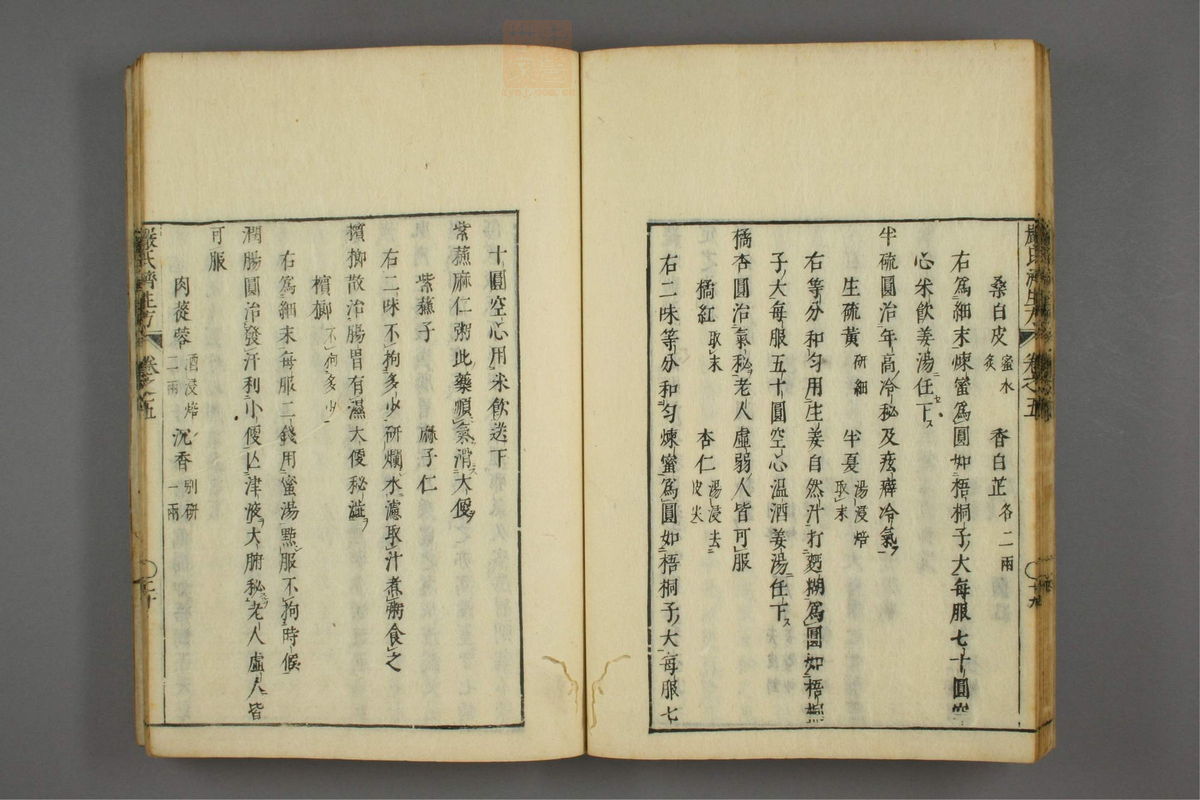 嚴氏濟生方 卷之五 十九
桑白皮 蜜水炙 香白芷 各二兩
右為細末煉蜜為圓如梧桐子大每服七十圓空
心米飲姜湯任下
半硫圓治年高冷秘及痃癖冷氣
生硫黃 研細 半夏 湯浸焙取末
右等分和勻用生姜自然汁打麪糊為圓如梧桐
子大每服五十圓空心溫酒姜湯任下
橘杏圓治氣秘老人虛弱人皆可服
橘紅 取末 杏仁 湯浸去皮尖
右二味等分和勻煉蜜為圓如梧桐子大每服七
十圓空心用米飲送下
紫蘇麻仁粥此藥順氣滑大便
紫蘇子 麻子仁
右二味不拘多少研爛水濾取汁煮粥食之
檳榔散治腸胃有濕大便秘澁
檳榔 不拘多少
右為細末每服二錢用蜜湯點服不拘時候
潤腸圓治發汗利小便亡津液大腑秘老人虛人皆
可服
肉蓯蓉 酒浸焙二兩 沉香 別研一兩
嚴氏濟生方 卷之五 二十